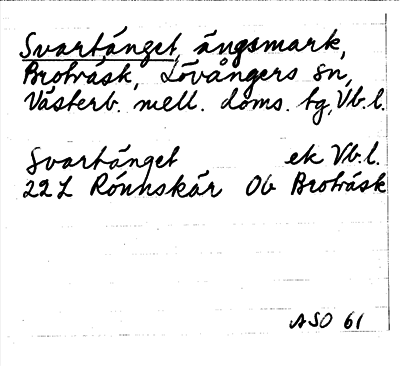 Svartänget, ängsmark,
Broträsk, Lövångers sn,
Västerb. mell. doms. tg, Vb. l.
Svartänget ek Vb. l.
22 L Rönnskär 0b Broträsk
ASO 61